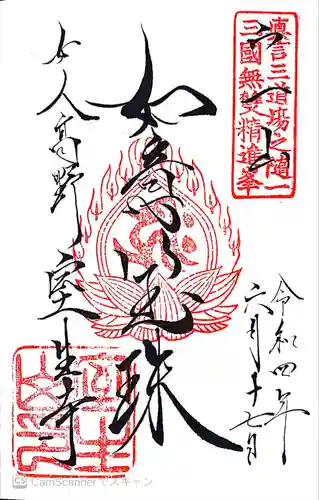 宀一山
真言三道場之随一
三國無雙精進峯
令和四年
六月十七日
如意宝珠
女人高野 室生寺
CS CamScanner でスキャン